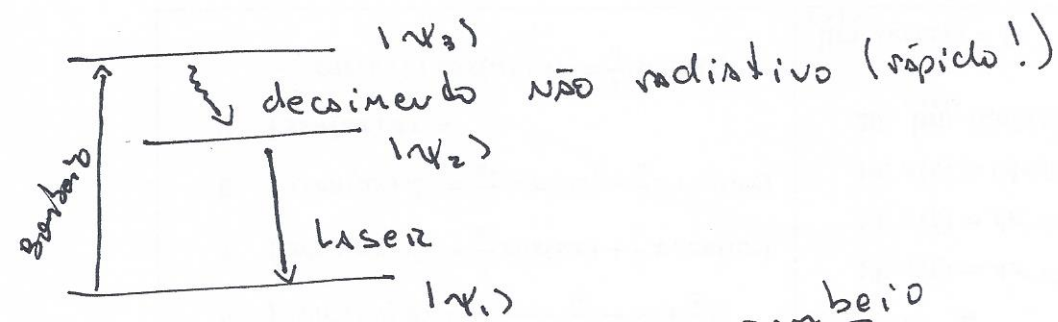 |ψ₃⟩
decaimento não radiativo (rápido!)
|ψ₂⟩
Bombeio
Laser
|ψ₁⟩
beio